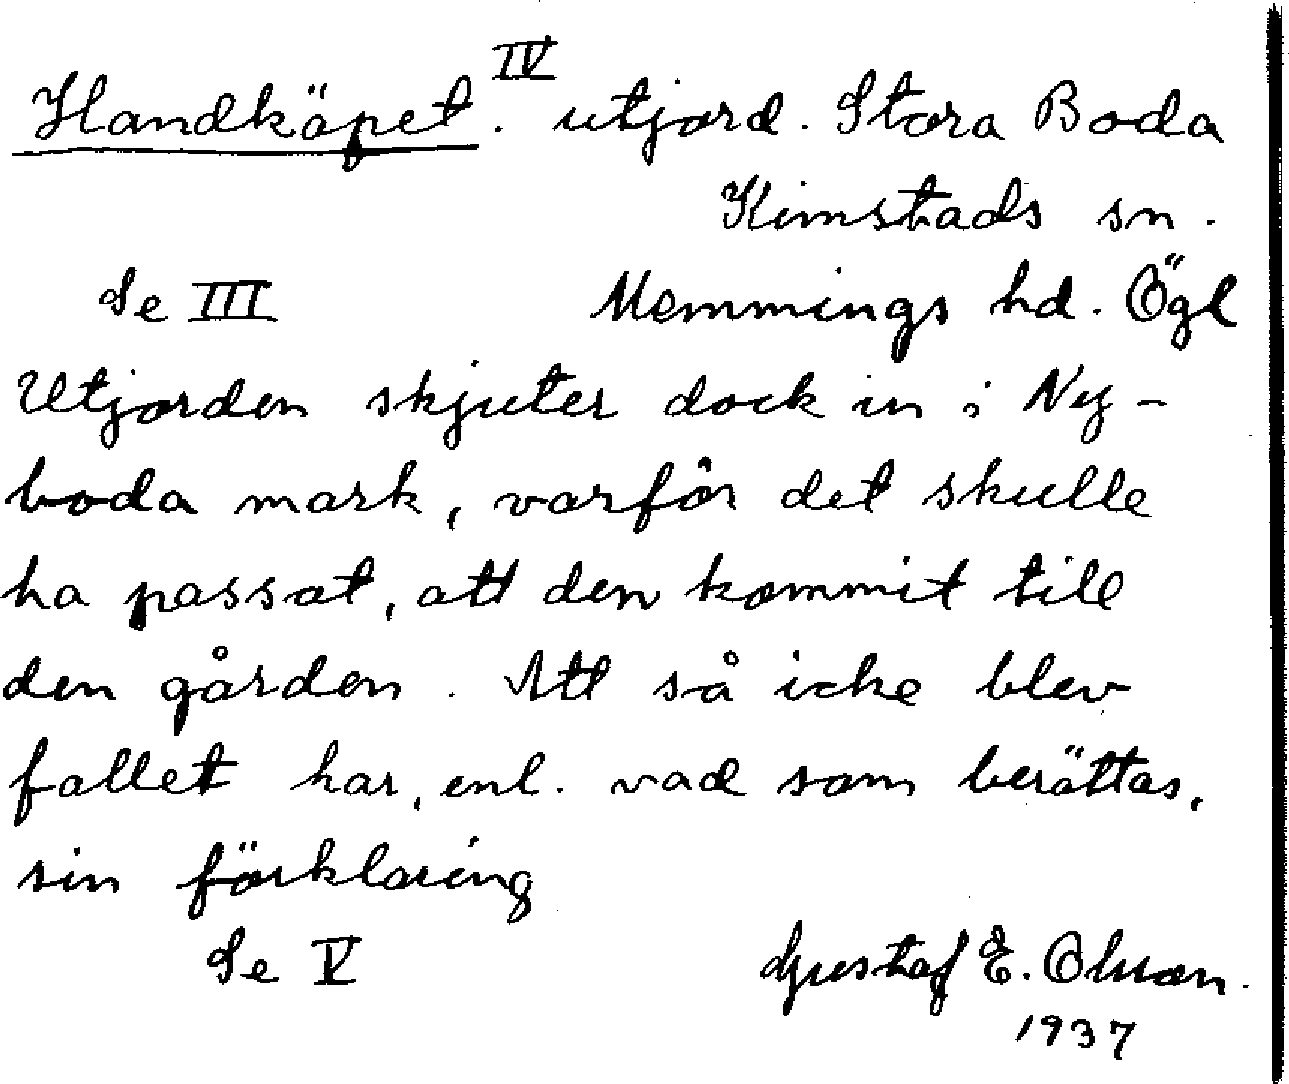 Handköpet. IV utjord. Stora Boda
Kimstads sn.
Se III Memmings hd. Ögl
Utjorden skjuter dock in i Ny-
boda mark, varför det skulle
ha passat, att den kommit till
den gården. Att så icke blev
fallet har, enl. vad som berättas,
sin förklaring
Se V Gustaf E. Olsson.
1937